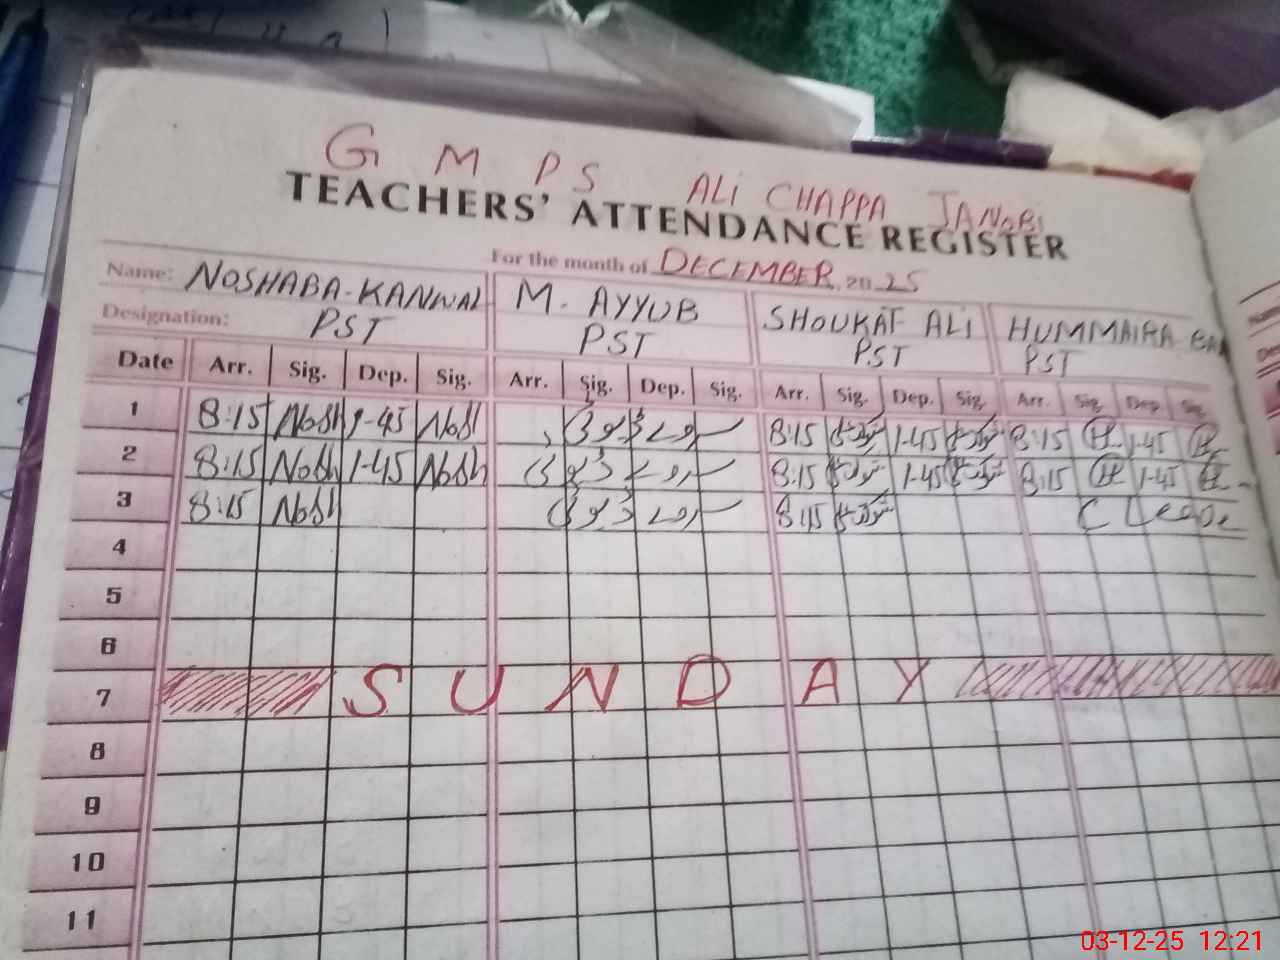 G M P S ALI CHAPPA JANOBI
TEACHERS' ATTENDANCE REGISTER
For the month of DECEMBER, 2025
Name: NOSHABA-KANWAL M. AYYUB SHOUKAT ALI HUMMAIRA
Designation: PST PST PST PST
Date Arr. Sig. Dep. Sig. Arr. Sig. Dep. Sig. Arr. Sig. Dep. Sig. Arr. Sig. Dep. Sig.
1 8:15 Nosh 1-45 Nosh 8:15 1-45 8:15 1-45
2 8:15 Nosh 1-45 Nosh 8:15 1-45 8:15 1-45
3 8:15 Nosh 8:15 C Leave
4
5
6
7 SUNDAY
8
9
10
11
03-12-25 12:21